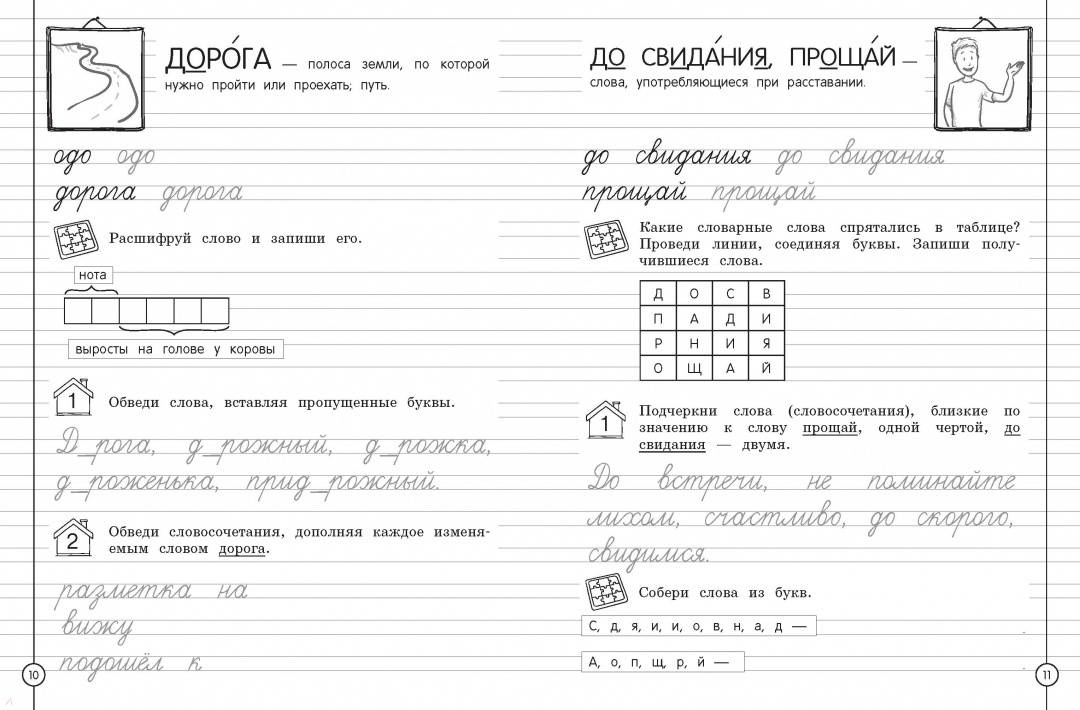 ДОРО́ГА — полоса земли, по которой
нужно пройти или проехать; путь.
одо одо
дорога дорога
Расшифруй слово и запиши его.
нота
выросты на голове у коровы
1 Обведи слова, вставляя пропущенные буквы.
Д_рога, д_рожный, д_рожка,
д_роженька, прид_рожный.
2 Обведи словосочетания, дополняя каждое изменя-
емым словом дорога.
разметка на
вижу
подошёл к
10
ДО СВИДА́НИЯ, ПРОЩА́Й —
слова, употребляющиеся при расставании.
до свидания до свидания
прощай прощай
Какие словарные слова спрятались в таблице?
Проведи линии, соединяя буквы. Запиши полу-
чившиеся слова.
Д О С В
П А Д И
Р Н И Я
О Щ А Й
1 Подчеркни слова (словосочетания), близкие по
значению к слову прощай, одной чертой, до
свидания — двумя.
До встречи, не поминайте
лихом, счастливо, до скорого,
свидимся.
Собери слова из букв.
С, д, я, и, и, о, в, н, а, д —
А, о, п, щ, р, й —
11